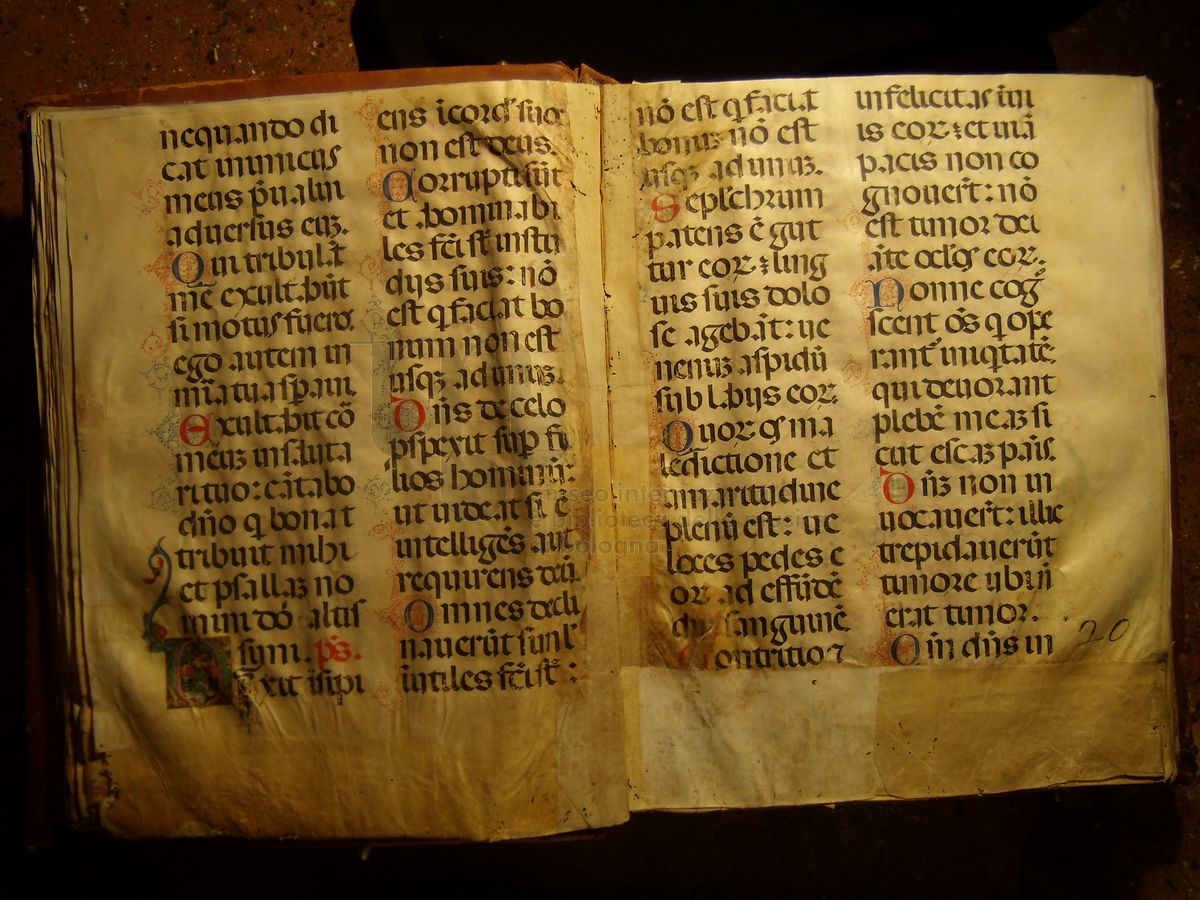 nequando di
cat inimicus
meus p̄ualui
aduersus euʒ.
Qui tribulāt
me exultabūt
si motus fuero
ego autem in
mīa tua sp̄aui
Exultabit cō
meuʒ insaluta
rituo: cātabo
dn̄o q bona t
tribuit mihi
et psallaʒ no
mini dn̄i altis
simi. ps.
Dixit isipi
ens īcord' suo
non est deus.
Corrupti sūt
et abominabi
les fc̄i st̄ instu
dijs suis: nō
est q faciat bo
num non est
usqʒ ad unuʒ.
Dn̄s de celo
ꝓspexit sup fi
lios hominū:
ut uideat si ē
intelligēs aut
requirens deū.
Omnes decli
nauerūt simł
inutiles fc̄i st̄:
nō est q faciat
bonuʒ nō est
usqʒ ad unuʒ.
Seplc̄hrum
patens ē gut
tur eoꝝ ⁊ ling
uis suis dolo
se agebāt: ue
nenuʒ aspidū
sub labijs eoꝝ.
Quoꝝ os ma
ledictione et
amaritudine
plenū est: ue
loces pedes e
oꝝ ad effūdē
dū sanguinē.
Contritio ⁊
infelicitas īui
is eoꝝ ⁊ et uiā
pacis non co
gnouer̄t: nō
est timor dei
āte oclōs eoꝝ.
Nonne cog
scent oēs q ope
rant̄ iniqtatē
qui deuorant
plebē meaʒ si
cut escaʒ pais.
Dn̄ʒ non in
uocauer̄t: illic
trepidauerūt
timore ubi nō
erat timor.
Qm̄ dn̄s in
20
museo inte
e bibliotec
bologna